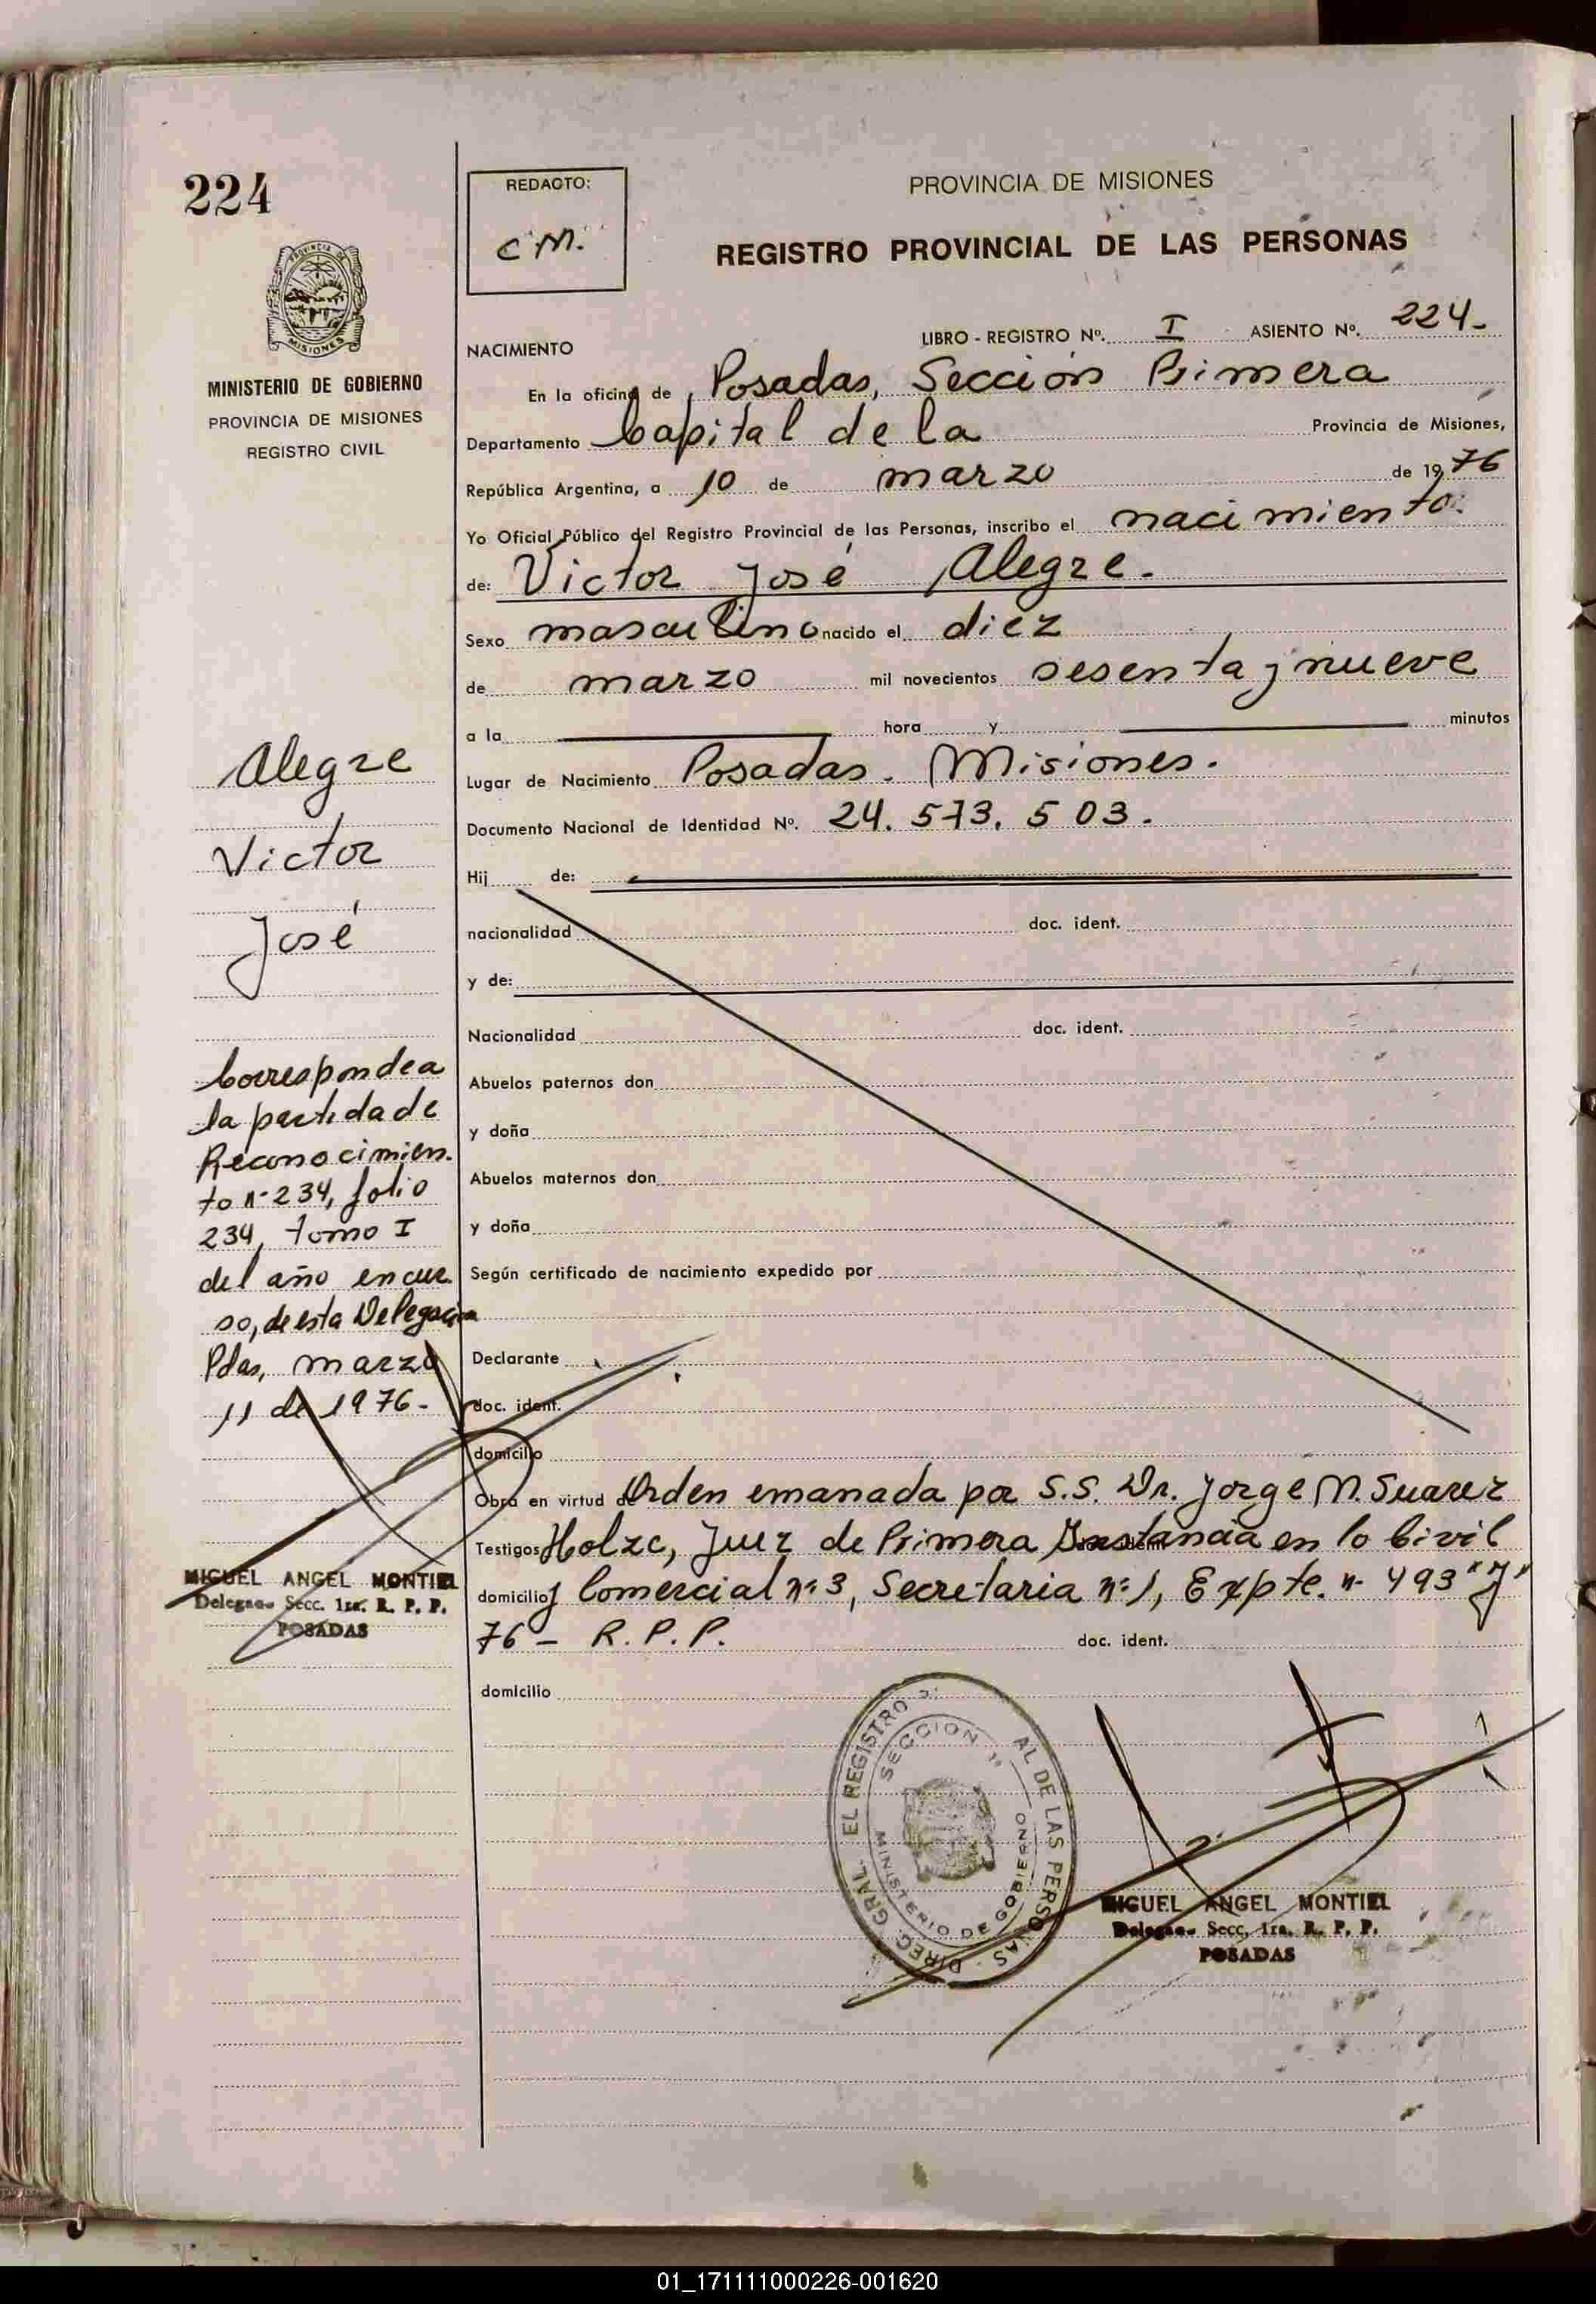 224
REDACTO:
C M.
PROVINCIA DE MISIONES
REGISTRO PROVINCIAL DE LAS PERSONAS
PROVINCIA DE
MISIONES
MINISTERIO DE GOBIERNO
PROVINCIA DE MISIONES
REGISTRO CIVIL
NACIMIENTO
LIBRO - REGISTRO Nº. I ASIENTO Nº. 224-
En la oficina de Posadas, Sección Primera
Departamento Capital de la Provincia de Misiones,
República Argentina, a 10 de marzo de 1976
Yo Oficial Público del Registro Provincial de las Personas, inscribo el nacimiento
de: Victor José Alegre.
Sexo masculino nacido el diez
de marzo mil novecientos sesenta y nueve
a la hora y minutos
Lugar de Nacimiento Posadas. Misiones.
Documento Nacional de Identidad Nº. 24.573.503.
Hij de:
nacionalidad doc. ident.
y de:
Nacionalidad doc. ident.
Abuelos paternos don
y doña
Abuelos maternos don
y doña
Según certificado de nacimiento expedido por
Declarante
doc. ident.
domicilio
Obra en virtud de Orden emanada por S.S. Dr. Jorge M. Suarez
Testigos Holzc, Juez de Primera Instancia en lo Civil
domicilio y Comercial nº 3, Secretaria nº 1, Expte. nº 493 "J"
76 - R.P.P. doc. ident.
domicilio
Alegre
Victor
José
Corresponde a
la partida de
Reconocimien-
to nº 234, folio
234, tomo I
del año en cur-
so, de esta Delegación
Pdas, marzo
11 de 1976-
MIGUEL ANGEL MONTIEL
Delegado Secc. 1ra. R. P. P.
POSADAS
DIREC. GRAL. EL REGISTRO AL DE LAS PERSONAS
SECCION 1ª
MINISTERIO DE GOBIERNO
MIGUEL ANGEL MONTIEL
Delegado Secc. 1ra. R. P. P.
POSADAS
01_171111000226-001620